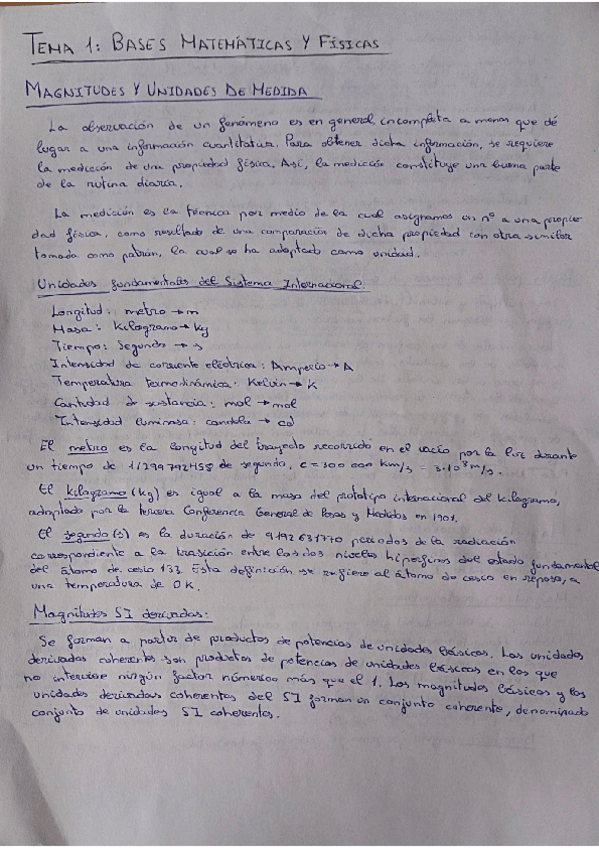 TEMA 1: BASES MATEMÁTICAS Y FÍSICAS
MAGNITUDES Y UNIDADES DE MEDIDA
La observación de un fenómeno es en general incompleta a menos que dé
lugar a una información cuantitativa. Para obtener dicha información, se requiere
la medición de una propiedad física. Así, la medición constituye una buena parte
de la rutina diaria.
La medición es la técnica por medio de la cual asignamos un nº a una propie
dad física, como resultado de una comparación de dicha propiedad con otra similar
tomada como patrón, la cual se ha adoptado como unidad.
Unidades fundamentales del Sistema Internacional
Longitud: metro → m
Masa: Kilogramo → Kg
Tiempo: Segundo → s
Intensidad de corriente eléctrica: Amperio → A
Temperatura termodinámica: Kelvin → K
Cantidad de sustancia: mol → mol
Intensidad luminosa: candela → cd
El metro es la longitud del trayecto recorrido en el vacío por la luz durante
un tiempo de 1/299 792 458 de segundo. c = 300 000 km/s = 3·10⁸ m/s.
El kilogramo (kg) es igual a la masa del prototipo internacional del kilogramo,
adoptado por la tercera Conferencia General de Pesas y Medidas en 1901.
El segundo (s) es la duración de 9 192 631 770 periodos de la radiación
correspondiente a la trasición entre los dos niveles hiperfinos del estado fundamental
del átomo de cesio 133. Esta definición se refiere al átomo de cesio en reposo, a
una temperatura de 0 K.
Magnitudes SI derivadas:
Se forman a partir de productos de potencias de unidades básicas. Las unidades
derivadas coherentes son productos de potencias de unidades básicas en los que
no interviene ningún factor númerico más que el 1. Las magnitudes básicas y las
unidades derivadas coherentes del SI forman un conjunto coherente, denominado
conjunto de unidades SI coherentes.